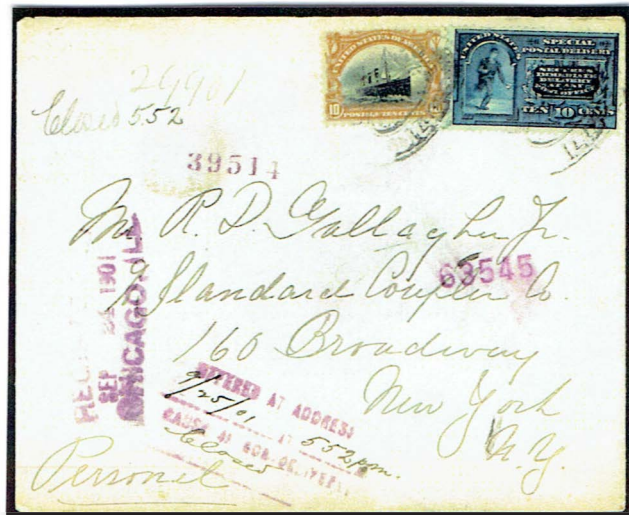 UNITED STATES OF AMERICA
10
POSTAGE TEN CENTS
UNITED STATES
SPECIAL
POSTAL DELIVERY
SECURES
IMMEDIATE
DELIVERY
AT ANY
POST OFFICE
TEN 10 CENTS
29901
Closed 552
39514
Mr. R. D. Gallagher Jr.
Standard Coupler Co.
63545
160 Broadway
New York
N.Y.
SEP 1901
CHICAGO, ILL
OFFERED AT ADDRESS
9/25/01
AT 552 pm.
CAUSE OF NON-DELIVERY
Closed
Personal